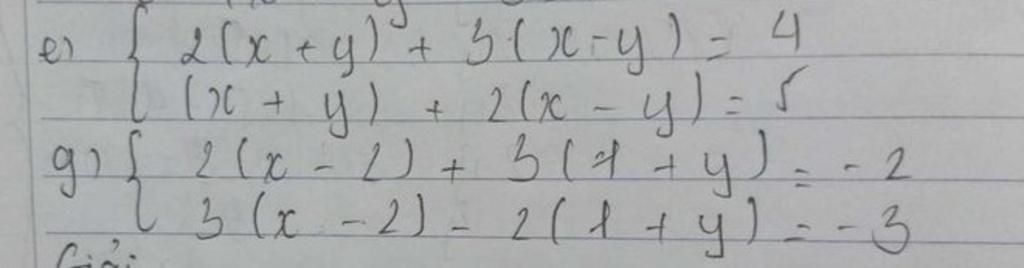 e) { 2(x + y) + 3(x - y) = 4
(x + y) + 2(x - y) = 5
g) { 2(x - 2) + 3(1 + y) = -2
3(x - 2) - 2(1 + y) = -3
Giải: